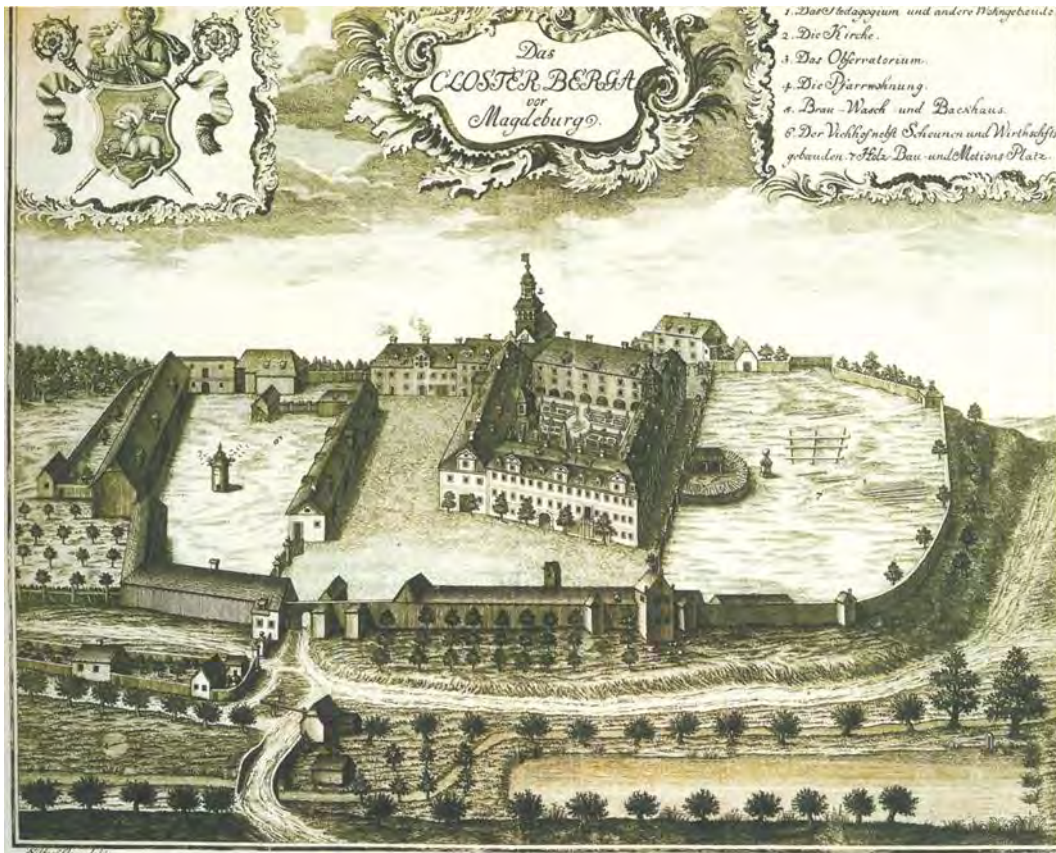 Das
CLOSTER BERGA
vor
Magdeburg.
1. Das Pedagogium und andere Wohngebäude
2. Die Kirche.
3. Das Observatorium.
4. Die Pfarrwohnung.
5. Brau-Wasch und Backhaus.
6. Der Viehhof nebst Scheunen und Wirthschfts
gebauden. 7 Holz Bau-und Motions Platz.
7